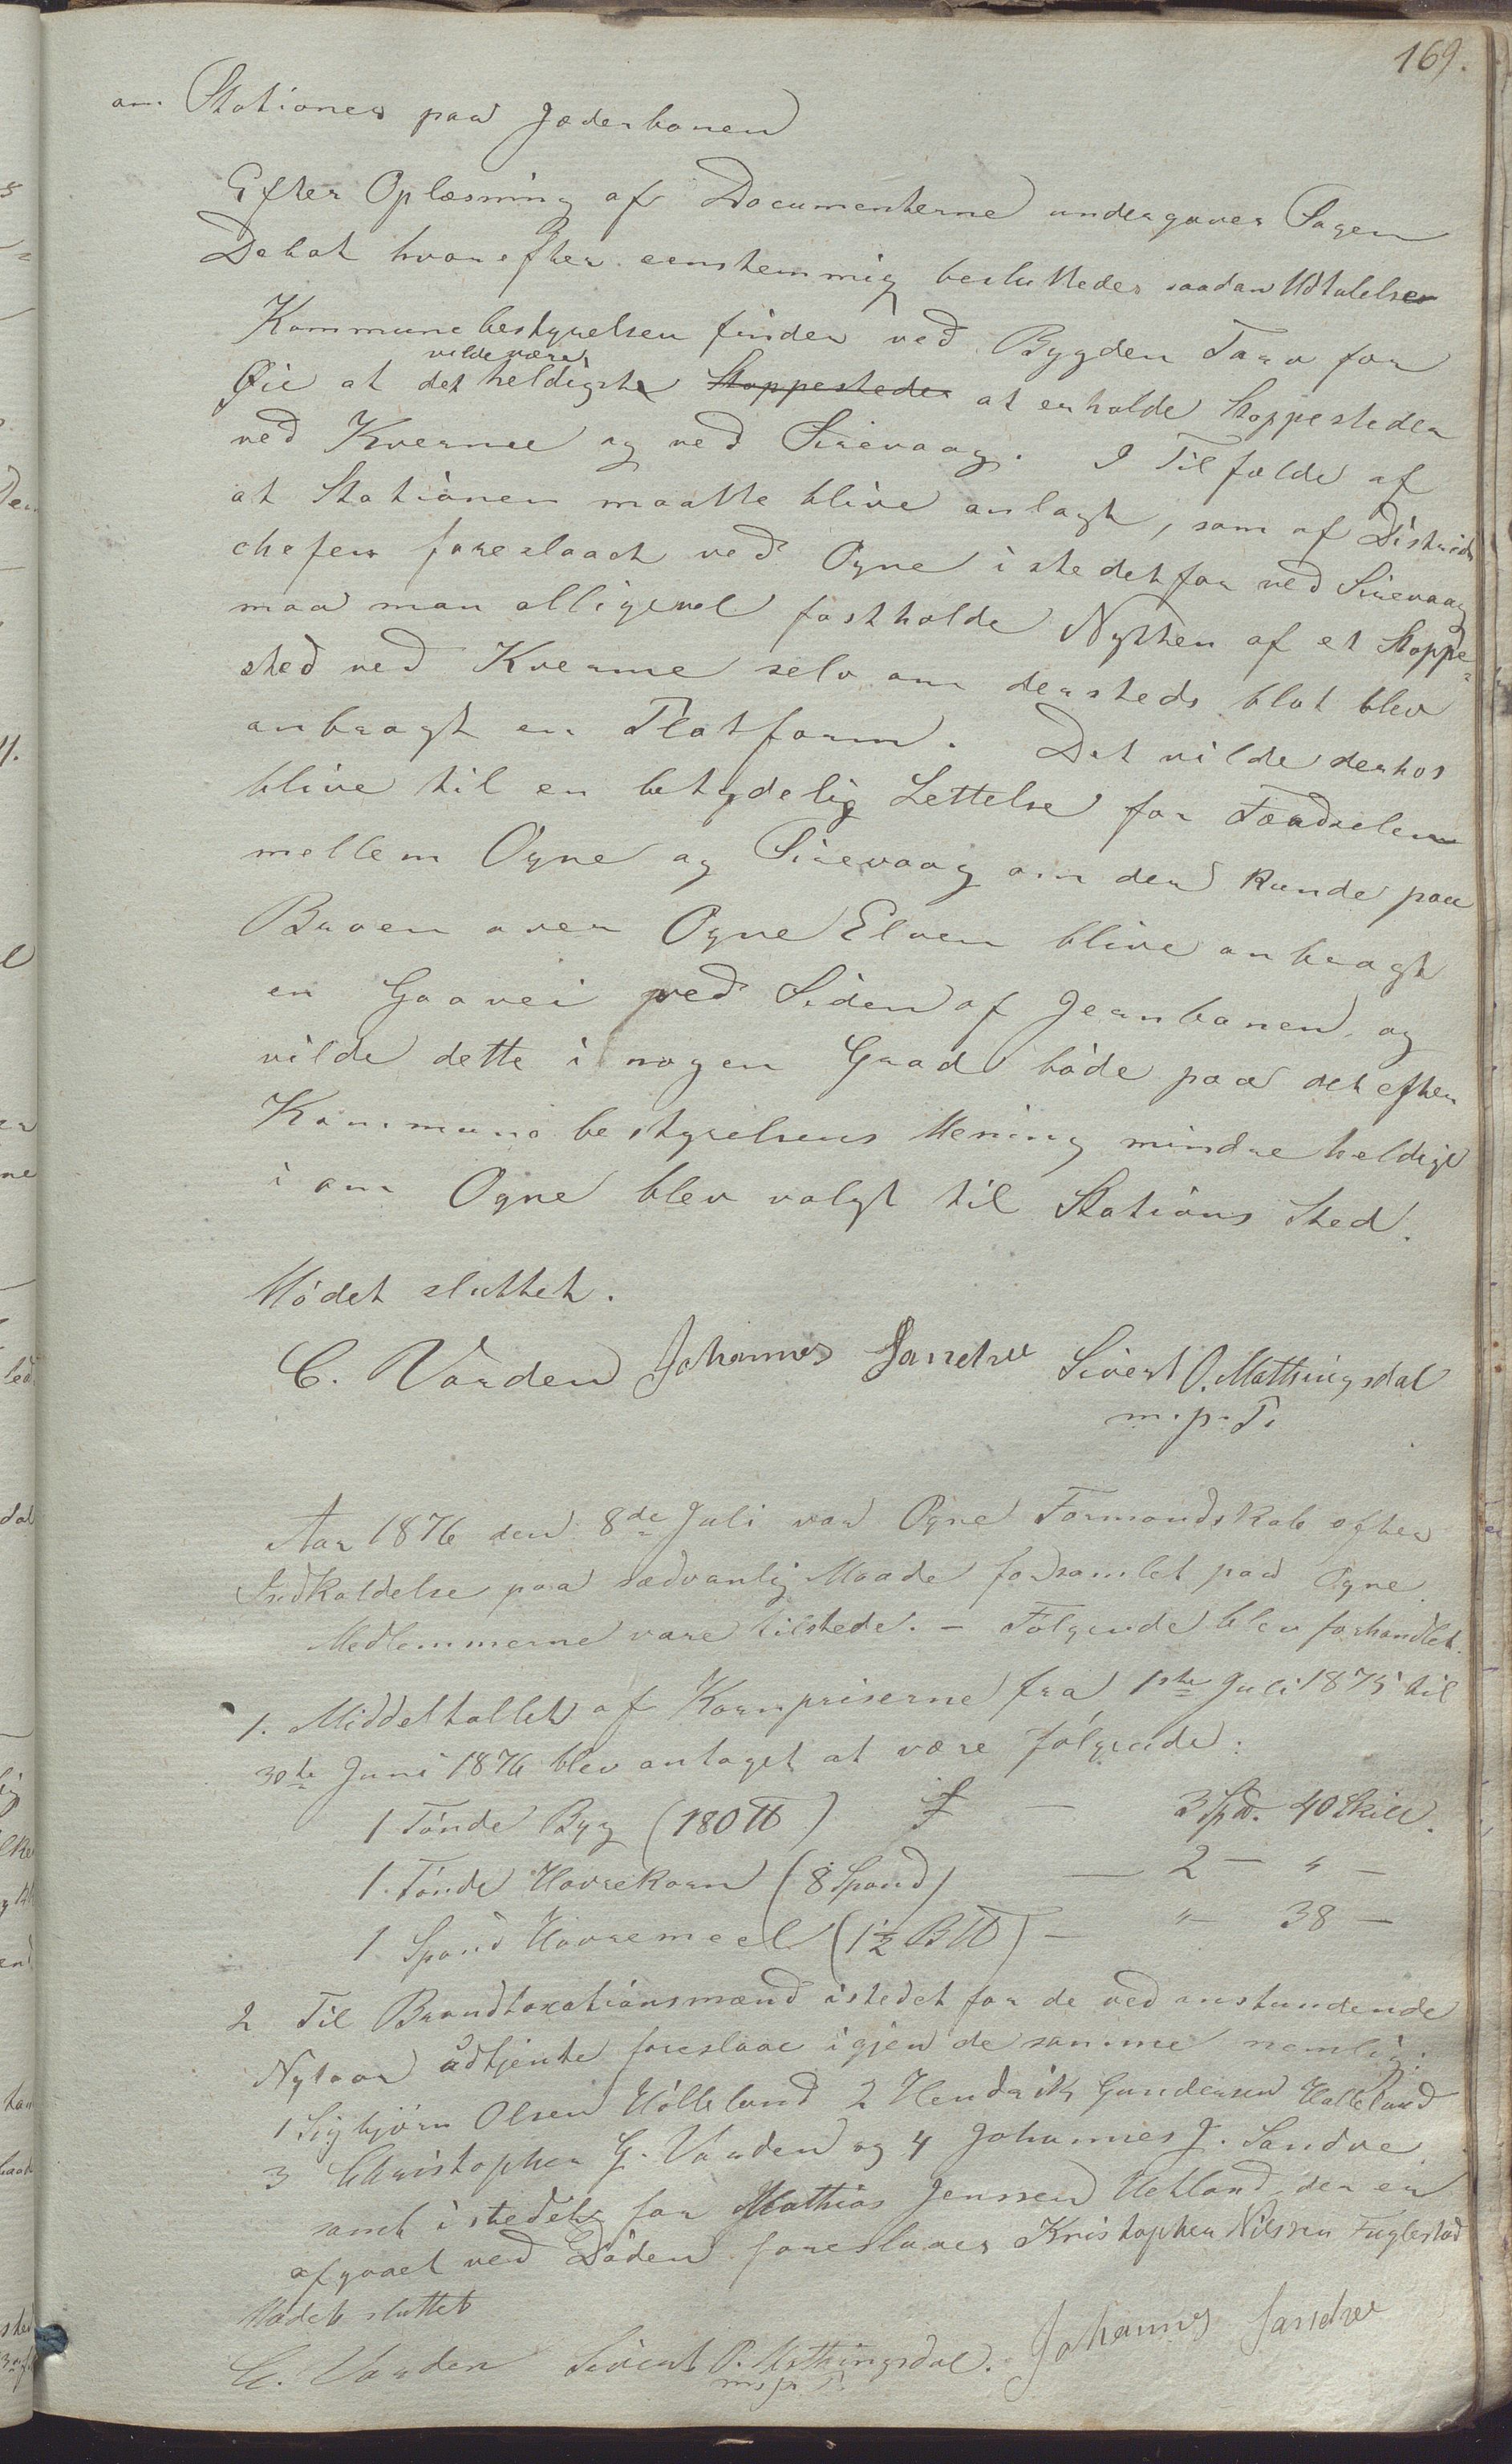 169.
om Stationer paa Jæderbanen
Efter Oplæsning af Documenterne undergaves Sagen
Debat hvorefter eenstemmig besluttedes saadan Udtalelse
Kommunebestyrelsen finder ved Bygden Tarv for
vilde være
Øie at det heldigste Stoppesteder at erholde Stoppesteder
ved Kverme og ved Sirevaag. I Tilfælde af
at Stationen maatte blive anlagt, som af Districts
chefen foreslaaet ved Ogne istedetfor ved Sirevaag
maa man alligevel fastholde Nytten af et Stoppe-
sted ved Kverme selv om dersteds blot blev
anbragt en Platform. Det vilde derhos
blive til en betydelig Lettelse for Færdselen
mellem Ogne og Sirevaag om der kunde paa
Broen over Ogne Elven blive anbragt
en Gaavei ved Siden af Jernbanen og
vilde dette i nogen Grad bøde paa det efter
Kommunebestyrelsens Mening mindre heldige
i om Ogne blev valgt til Stations Sted.
Mødet sluttet.
C. Varden Johannes Sandve Sivert O. Mathingsdal
m. p. P.
Aar 1876 den 8de Juli var Ogne Formandskab efter
Indkaldelse paa sædvanlig Maade forsamlet paa Ogne
Medlemmerne vare tilstede. - Følgende blev forhandlet.
1. Middeltallet af Kornpriserne fra 1ste Juli 1875 til
30te Juni 1876 blev antaget at være følgende:
1 Tønde Byg (180 ℔) — 3 Spd. 40 Skill.
1 Tønde Havrekorn (8 Spand) — 2 — " —
1 Spand Havremeel (1½ B℔) — " — 38 —
2 Til Brandtaxationsmænd istedet for de ved anstundende
Nytaar udtjente foreslaaes igjen de samme nemlig:
1 Sigbjørn Olsen Hølleland 2 Hendrik Gundersen Hølleland
3 Christopher G. Varden og 4 Johannes J. Sandve
samt istedet for Mathias Jenssen Uetland der er
afgaaet ved Døden foreslaaes Kristopher Nilssen Fuglestad
Mødet sluttet
C. Varden Sivert O. Mathingsdal. Johannes Sandve
m. p. P.